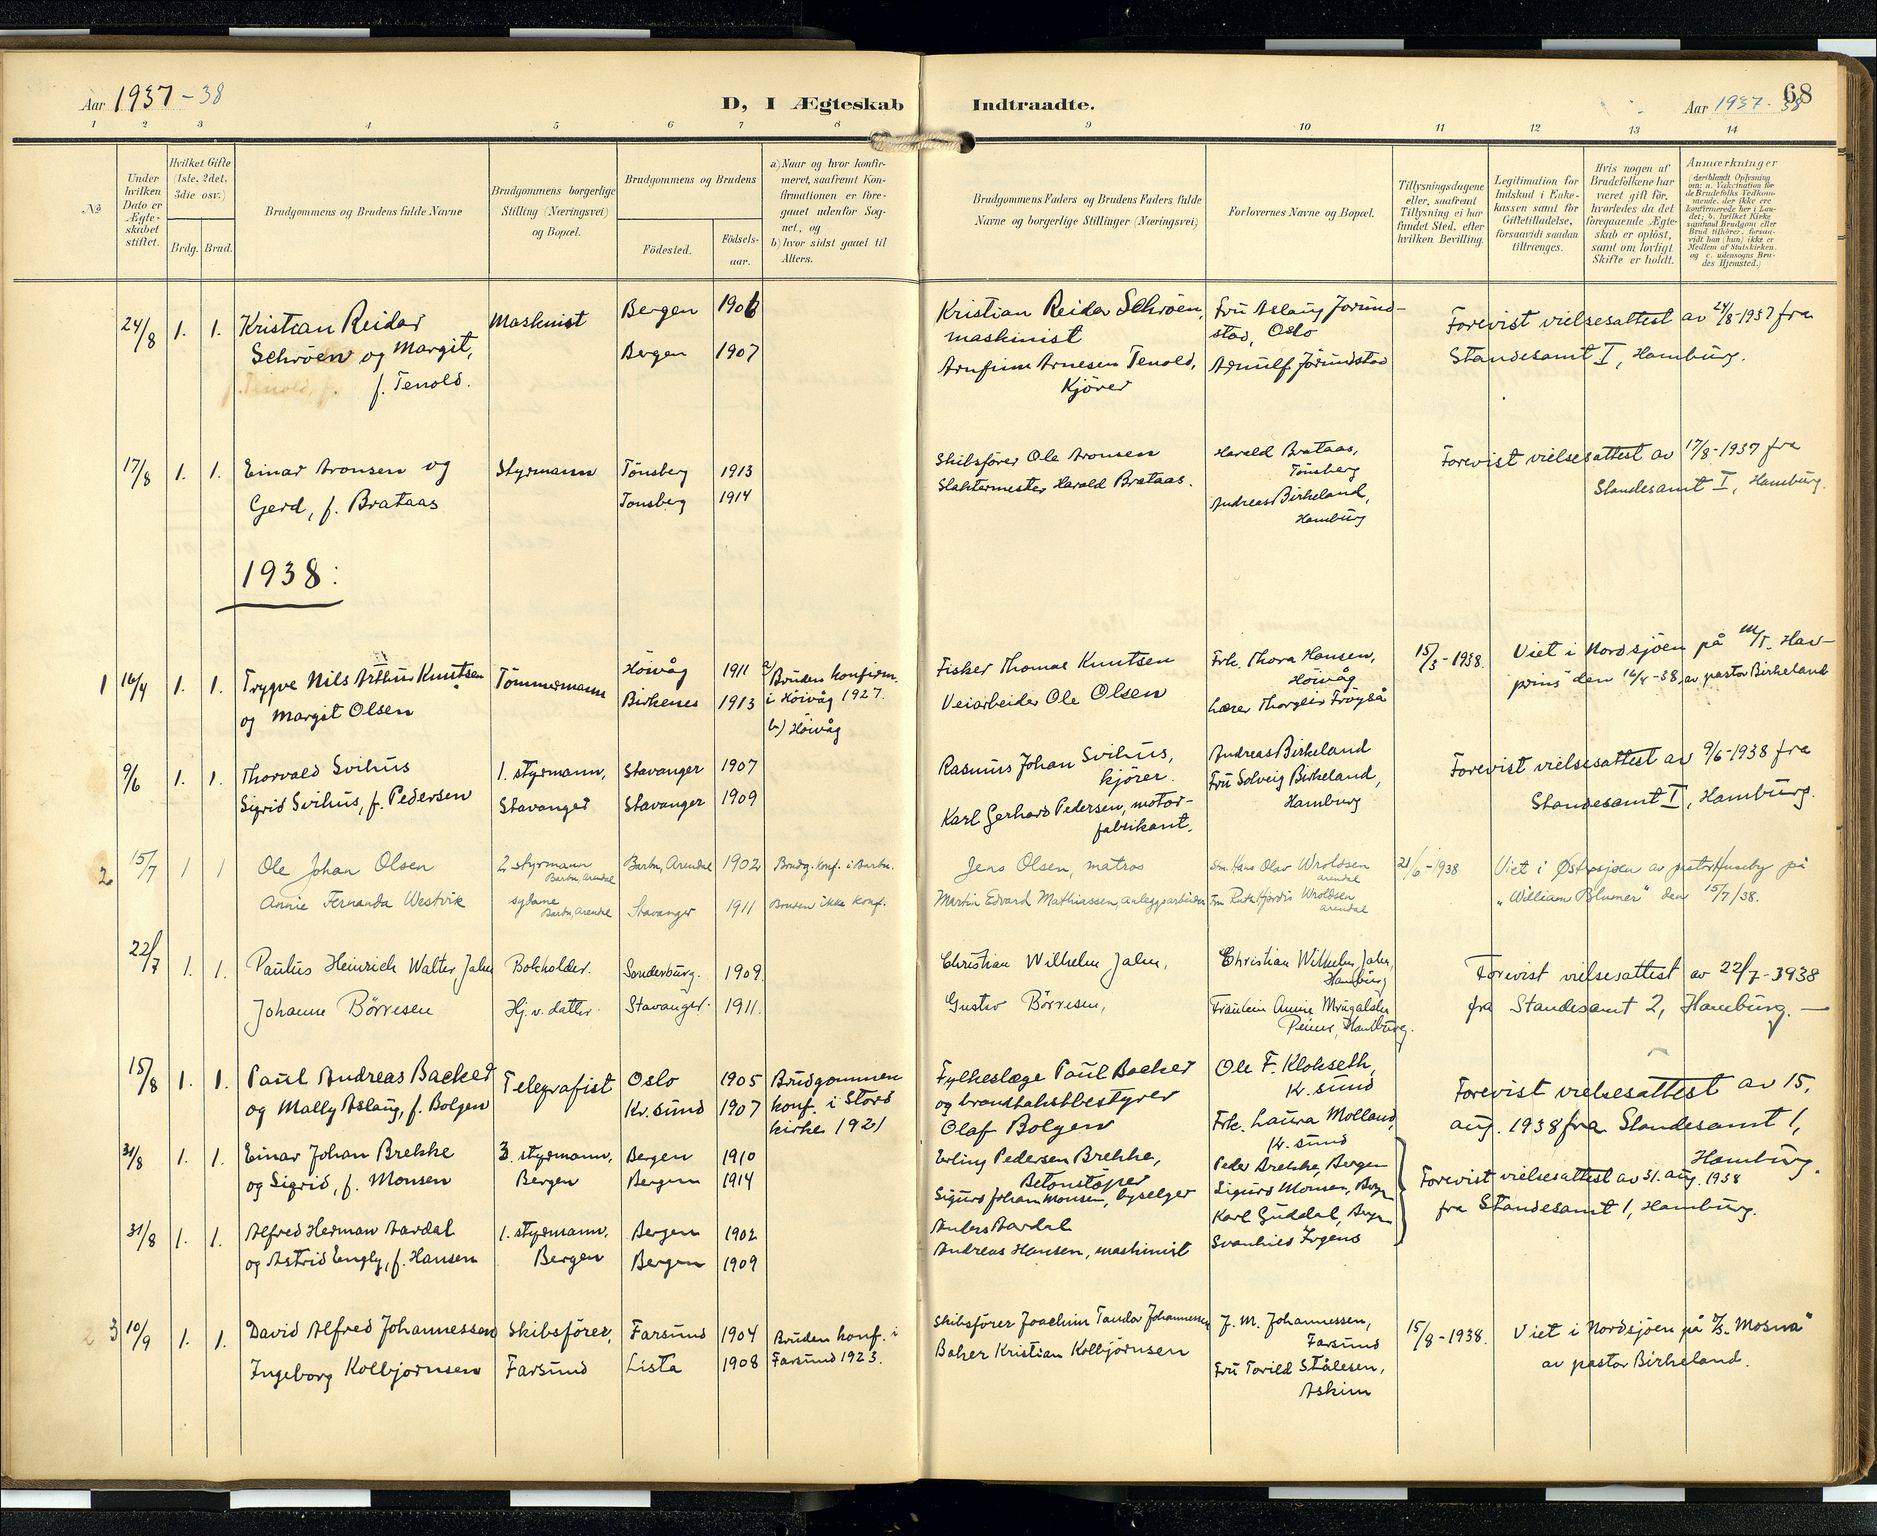 Aar 1937-38
D, I Ægteskab Indtraadte.
Aar 1937-38
68
1 2 3 4 5 6 7 8 9 10 11 12 13 14
No
Under hvilken Dato er Ægteskabet stiftet.
Hvilket Gifte (1ste, 2det, 3die osv.)
Brdg. Brud.
Brudgommens og Brudens fulde Navne
Brudgommens borgerlige Stilling (Næringsvei) og Bopæl.
Brudgommens og Brudens
Fødested.
Fødselsaar.
a) Naar og hvor konfirmeret, saafremt Konfirmationen er foregaaet udenfor Sognet, og
b) hvor sidst gaaet til Alters.
Brudgommens Faders og Brudens Faders fulde Navne og borgerlige Stillinger (Næringsvei)
Forlovernes Navne og Bopæl.
Tillysningsdagene eller, saafremt Tillysning ei har fundet Sted, efter hvilken Bevilling.
Legitimation for Indskud i Enkekassen samt for Giftetilladelse, forsaavidt saadan tiltrænges.
Hvis nogen af Brudefolkene har været gift før, hvorledes da det foregaaende Ægteskab er opløst, samt om lovligt Skifte er holdt.
Anmærkninger (deriblandt Oplysning om: a. Vakcination for de Brudefolks Vedkommende, der ikke ere konfirmerede her i Landet; b. hvilket Kirkesamfund Brudgom eller Brud tilhører, forsaavidt han (hun) ikke er Medlem af Statskirken, og c. udensogns Brudes Hjemsted.)
24/8 1. 1. Kristian Reidar
Schrøen og Margit,
f. Tenold.
Maskinist
Bergen 1906
Bergen 1907
Kristian Reidar Schrøen,
maskinist
Arnfinn Arnesen Tenold,
Kjører
Fru Aslaug Jorund-
stad, Oslo
Arnulf Jørundstad
Forevist vielsesattest av 24/8-1937 fra
Standesamt I, Hamburg.
17/8 1. 1. Einar Aronsen og
Gerd, f. Brataas
Styrmann
Tønsberg 1913
Tønsberg 1914
Skibsfører Ole Aronsen
Slaktermester Harald Brataas.
Harald Brataas,
Tønsberg
Andreas Birkeland,
Hamburg
Forevist vielsesattest av 17/8-1937 fra
Standesamt I, Hamburg.
1938:
1 16/4 1. 1. Trygve Nils Arthur Knutsen
og Margit Olsen
Tømmermann
Høivåg 1911
Birkenes 1913
a) Bruden konfirm.
i Høivåg 1927.
b) Høivåg
Fisker Thomas Knutsen
Veiarbeider Ole Olsen
Frk. Thora Hansen,
Høivåg
Lærer Thorleif Frøyså
15/3-1938.
Viet i Nordsjøen på M/T. Hav-
prins den 16/4-38, av pastor Birkeland
9/6 1. 1. Thorvald Svihus
Sigrid Svihus, f. Pedersen
1. styrmann,
Stavanger
Stavanger 1907
Stavanger 1909
Rasmus Johan Svihus,
kjører.
Karl Gerhard Pedersen, motor-
fabrikant.
Andreas Birkeland
Fru Solveig Birkeland,
Hamburg
Forevist vielsesattest av 9/6-1938 fra
Standesamt I, Hamburg.
2 15/7 1 1 Ole Johan Olsen
Annie Fernanda Westvik
2 styrmann
Barbu, Arendal
sydame
Barbu, Arendal
Barbu, Arendal 1902
Stavanger 1911
Brudg. konf. i Barbu.
Bruden ikke konf.
Jens Olsen, matros
Martin Edvard Mathiassen, anleggsarbeider
Hans Olav Wroldsen
Arendal
Fru Ruth Hjørdis Wroldsen
Arendal
21/6-1938
Viet i Østersjøen av pastor Huseby på
"William Blumer" den 15/7/38.
22/7 1. 1. Paulus Heinrich Walter Jahn
Johanne Børresen
Bokholder.
Hj. v. datter.
Sonderburg. 1909
Stavanger. 1911.
Christian Wilhelm Jahn,
Gustav Børresen,
Christian Wilhelm Jahn,
Hamburg
Fräulein Annie
Hamburg.
Forevist vielsesattest av 22/7-3938
fra Standesamt 2, Hamburg. —
15/8 1. 1. Paul Andreas Backer
og Mally Aslaug, f. Bolgen
Telegrafist
Oslo 1905
Kr.sund 1907
Brudgommen
konf. i Stord
kirke 1921
Fylkeslege Paul Backer
og brandtakstbestyrer
Olaf Bolgen
Ole F. Klokseth,
Kr. sund
Frk. Laura Molland,
Kr. sund
Forevist vielsesattest av 15.
aug. 1938 fra Standesamt 1,
Hamburg.
31/8 1. 1. Einar Johan Brekke
og Sigrid, f. Monsen
3. styrmann,
Bergen
Bergen 1910
Bergen 1914
Erling Pedersen Brekke,
Betonstøper
Sigurd Johan Monsen, byselger
Peder Brekke, Bergen
Sigurd Monsen, Bergen
Forevist vielsesattest av 31. aug. 1938
fra Standesamt 1, Hamburg.
31/8 1. 1. Alfred Herman Aardal
og Astrid Engly, f. Hansen
1. styrmann,
Bergen
Bergen 1902
Bergen 1909
Anders Aardal
Andreas Hansen, maskinist
Karl Guddal, Bergen
Svanhild Irgens
3 10/9 1. 1. David Alfred Johannessen
Ingeborg Kolbjørnsen
Skibsfører,
Farsund
Farsund 1904
Lista 1908
Bruden konf. i
Farsund 1923.
Skibsfører Joachim Tandor Johannessen
Baker Kristian Kolbjørnsen
J. M. Johannessen,
Farsund
Fru Torild Stålesen,
Askim
15/8-1938.
Viet i Nordsjøen på D/S. Mosna"
av pastor Birkeland.